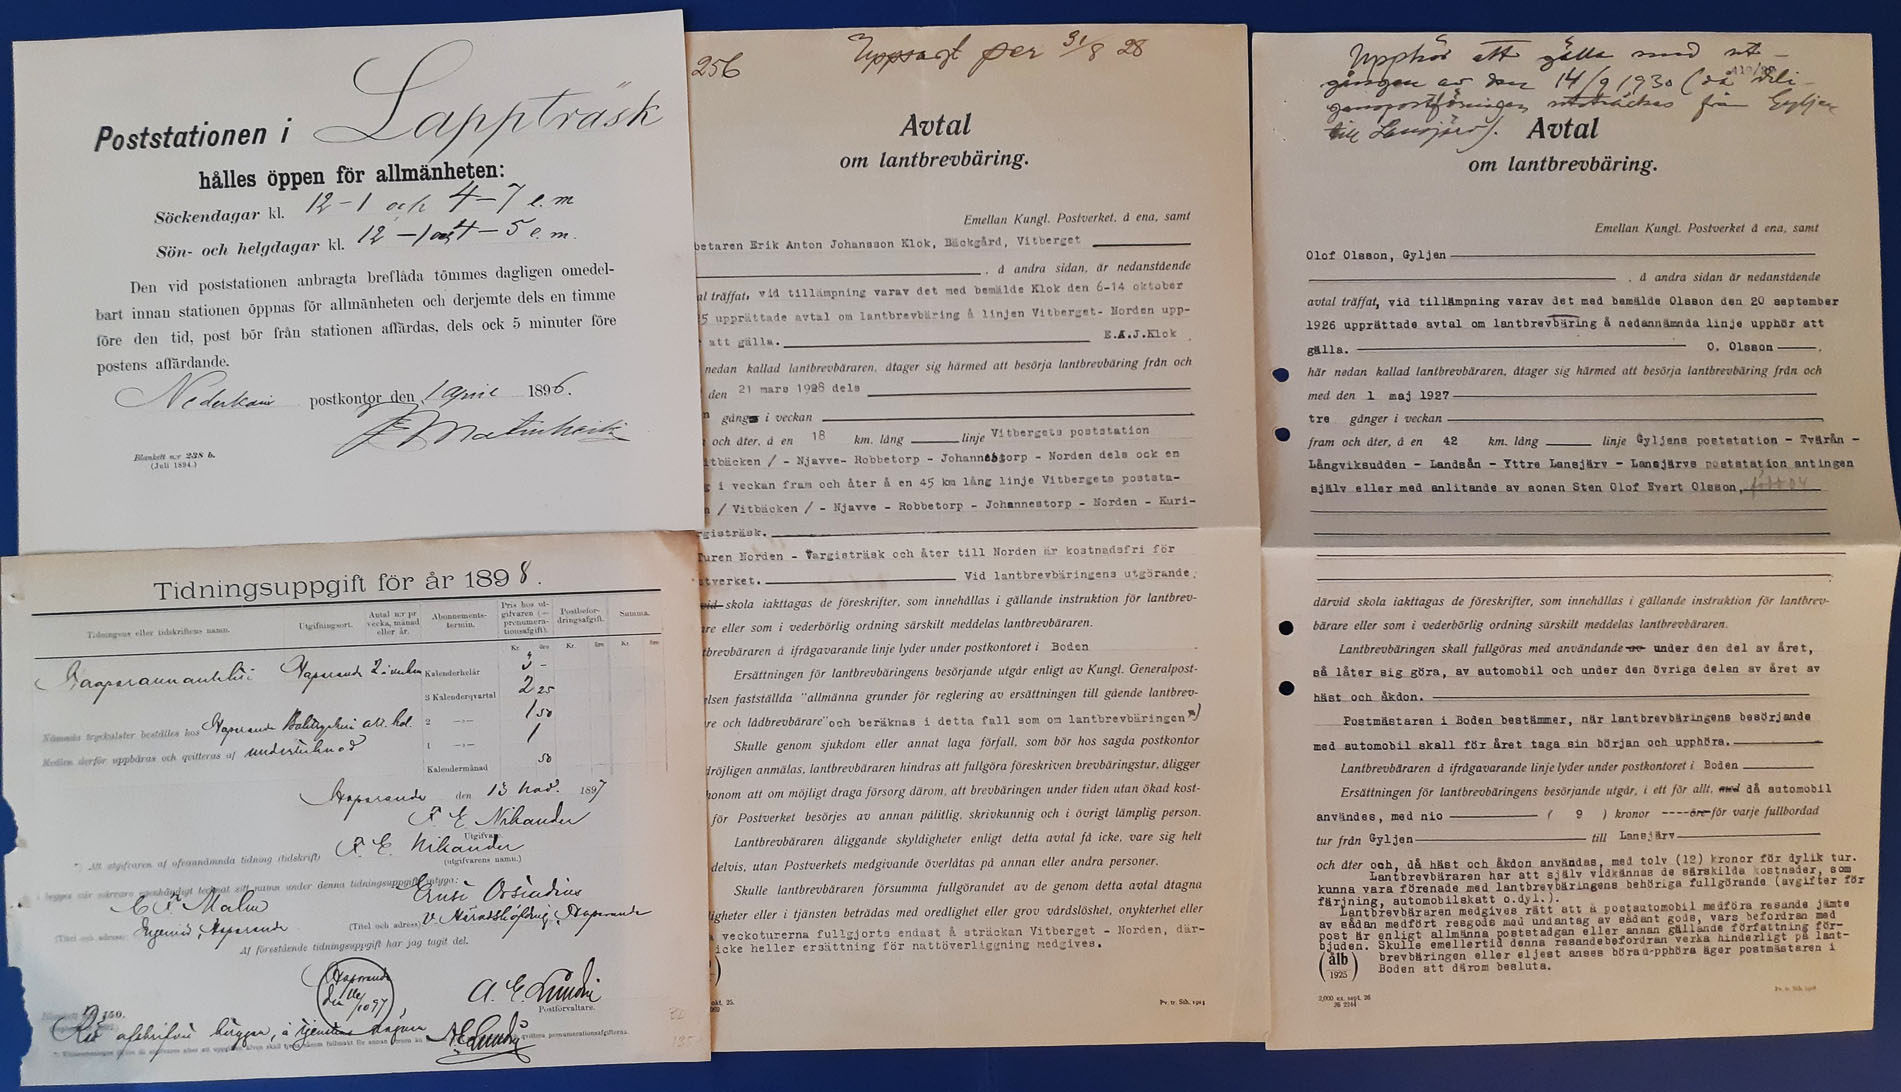 Poststationen i Lappträsk
hålles öppen för allmänheten:
Söckendagar kl. 12-1 och 4-7 e.m
Sön- och helgdagar kl. 12-1 och 4-5 e.m.
Den vid poststationen anbragta breflåda tömmes dagligen omedel-
bart innan stationen öppnas för allmänheten och derjemte dels en timme
före den tid, post bör från stationen affärdas, dels ock 5 minuter före
postens affärdande.
postkontor den 1 april 1896.
Blankett n:r 238 b.
(Juli 1894.)
Tidningsuppgift för år 1898.
Tidningens eller tidskriftens namn.
Utgifningsort.
Antal n:r pr
vecka, månad
eller år.
Abonnements-
termin.
Pris hos ut-
gifvaren (=
prenumera-
tionsafgift).
Postbefor-
dringsafgift.
Summa.
Kr. öre Kr. öre Kr. öre
Haparanda
Kalenderhelår 3 -
3 Kalenderqvartal 2 25
2 -»- 1 50
1 -»- 1
Kalendermånad 50
Nämnda tryckalster beställes hos Haparanda
Medlen derför uppbäras och qvitteras af undertecknad
Haparanda den 13 nov. 1897
F. E. Nihander
Utgifvare.
*) Att utgifvaren af ofvannämnda tidning (tidskrift) F. E. Nihander
(utgifvarens namn.)
egenhändigt tecknat sitt namn under denna tidningsuppgift, intyga:
Malm
(Titel och adress) Haparanda
(Titel och adress) V. Häradshöfding, Haparanda
Af förestående tidningsuppgift har jag tagit del.
Haparanda
Postförvaltare.
256
Uppsagt per 31/8 28
Avtal
om lantbrevbäring.
Emellan Kungl. Postverket, å ena, samt
betaren Erik Anton Johansson Klok, Bäckgård, Vitberget
, å andra sidan, är nedanstående
al träffat, vid tillämpning varav det med bemälde Klok den 6-14 oktober
5 upprättade avtal om lantbrevbäring å linjen Vitberget- Norden upp-
att gälla. E.A.J.Klok
nedan kallad lantbrevbäraren, åtager sig härmed att besörja lantbrevbäring från och
den 21 mars 1928 dels
gång i veckan
och åter, å en 18 km. lång linje Vitbergets poststation
itbäcken / - Njavve- Robbetorp - Johannestorp - Norden dels ock en
g i veckan fram och åter å en 45 km lång linje Vitbergets poststa-
n / Vitbäcken / - Njavve - Robbetorp - Johannestorp - Norden - Kuri-
rgisträsk.
Turen Norden - Vargisträsk och åter till Norden är kostnadsfri för
stverket. Vid lantbrevbäringens utgörande
vid skola iakttagas de föreskrifter, som innehållas i gällande instruktion för lantbrev-
are eller som i vederbörlig ordning särskilt meddelas lantbrevbäraren.
tbrevbäraren å ifrågavarande linje lyder under postkontoret i Boden
Ersättningen för lantbrevbäringens besörjande utgår enligt av Kungl. Generalpost-
elsen fastställda "allmänna grunder för reglering av ersättningen till gående lantbrev-
re och lådbrevbärare" och beräknas i detta fall som om lantbrevbäringen *)
Skulle genom sjukdom eller annat laga förfall, som bör hos sagda postkontor
dröjligen anmälas, lantbrevbäraren hindras att fullgöra föreskriven brevbäringstur, åligger
honom att om möjligt draga försorg därom, att brevbäringen under tiden utan ökad kost-
för Postverket besörjes av annan pålitlig, skrivkunnig och i övrigt lämplig person.
Lantbrevbäraren åliggande skyldigheter enligt detta avtal få icke, vare sig helt
delvis, utan Postverkets medgivande överlåtas på annan eller andra personer.
Skulle lantbrevbäraren försumma fullgörandet av de genom detta avtal åtagna
igheter eller i tjänsten beträdas med oredlighet eller grov vårdslöshet, onykterhet eller
veckoturerna fullgjorts endast å sträckan Vitberget - Norden, där-
icke heller ersättning för nattöverliggning medgives.
Upphör att gälla med ut-
gången av den 14/9 1930 (då dili-
genspostföringen utsträckes från Gyljen
till Lansjärv).
Avtal
om lantbrevbäring.
Emellan Kungl. Postverket å ena, samt
Olof Olsson, Gyljen
, å andra sidan är nedanstående
avtal träffat, vid tillämpning varav det med bemälde Olsson den 20 september
1926 upprättade avtal om lantbrevbäring å nedannämnda linje upphör att
gälla. O. Olsson
här nedan kallad lantbrevbäraren, åtager sig härmed att besörja lantbrevbäring från och
med den 1 maj 1927
tre gånger i veckan
fram och åter, å en 42 km. lång linje Gyljens poststation - Tvärån -
Långviksudden - Landsån - Yttre Lansjärv - Lansjärvs poststation antingen
själv eller med anlitande av sonen Sten Olof Evert Olsson,
därvid skola iakttagas de föreskrifter, som innehållas i gällande instruktion för lantbrev-
bärare eller som i vederbörlig ordning särskilt meddelas lantbrevbäraren.
Lantbrevbäringen skall fullgöras med användande under den del av året,
så låter sig göra, av automobil och under den övriga delen av året av
häst och åkdon.
Postmästaren i Boden bestämmer, när lantbrevbäringens besörjande
med automobil skall för året taga sin början och upphöra.
Lantbrevbäraren å ifrågavarande linje lyder under postkontoret i Boden
Ersättningen för lantbrevbäringens besörjande utgår, i ett för allt, med då automobil
användes, med nio ( 9 ) kronor öre för varje fullbordad
tur från Gyljen till Lansjärv
och åter och, då häst och åkdon användas, med tolv (12) kronor för dylik tur.
Lantbrevbäraren har att själv vidkännas de särskilda kostnader, som
kunna vara förenade med lantbrevbäringens behöriga fullgörande (avgifter för
färjning, automobilskatt o.dyl.).
Lantbrevbäraren medgives rätt att å postautomobil medföra resande jämte
av sådan medfört resgods med undantag av sådant gods, vars befordran med
post är enligt allmänna poststadgan eller annan gällande författning för-
bjuden. Skulle emellertid denna resandebefordran verka hinderligt på lant-
brevbäringen eller eljest anses böra upphöra äger postmästaren i
Boden att därom besluta.
(ålb)
1925
2,000 ex. sept. 26